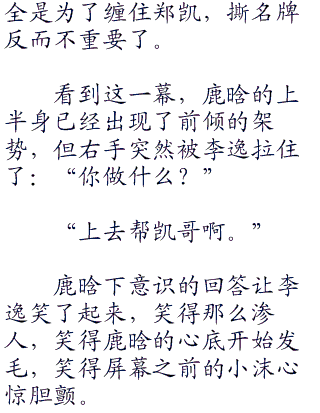 全是为了缠住郑凯，撕名牌
反而不重要了。
看到这一幕，鹿晗的上
半身已经出现了前倾的架
势，但右手突然被李逸拉住
了：“你做什么？”
“上去帮凯哥啊。”
鹿晗下意识的回答让李
逸笑了起来，笑得那么渗
人，笑得鹿晗的心底开始发
毛，笑得屏幕之前的小沫心
惊胆颤。